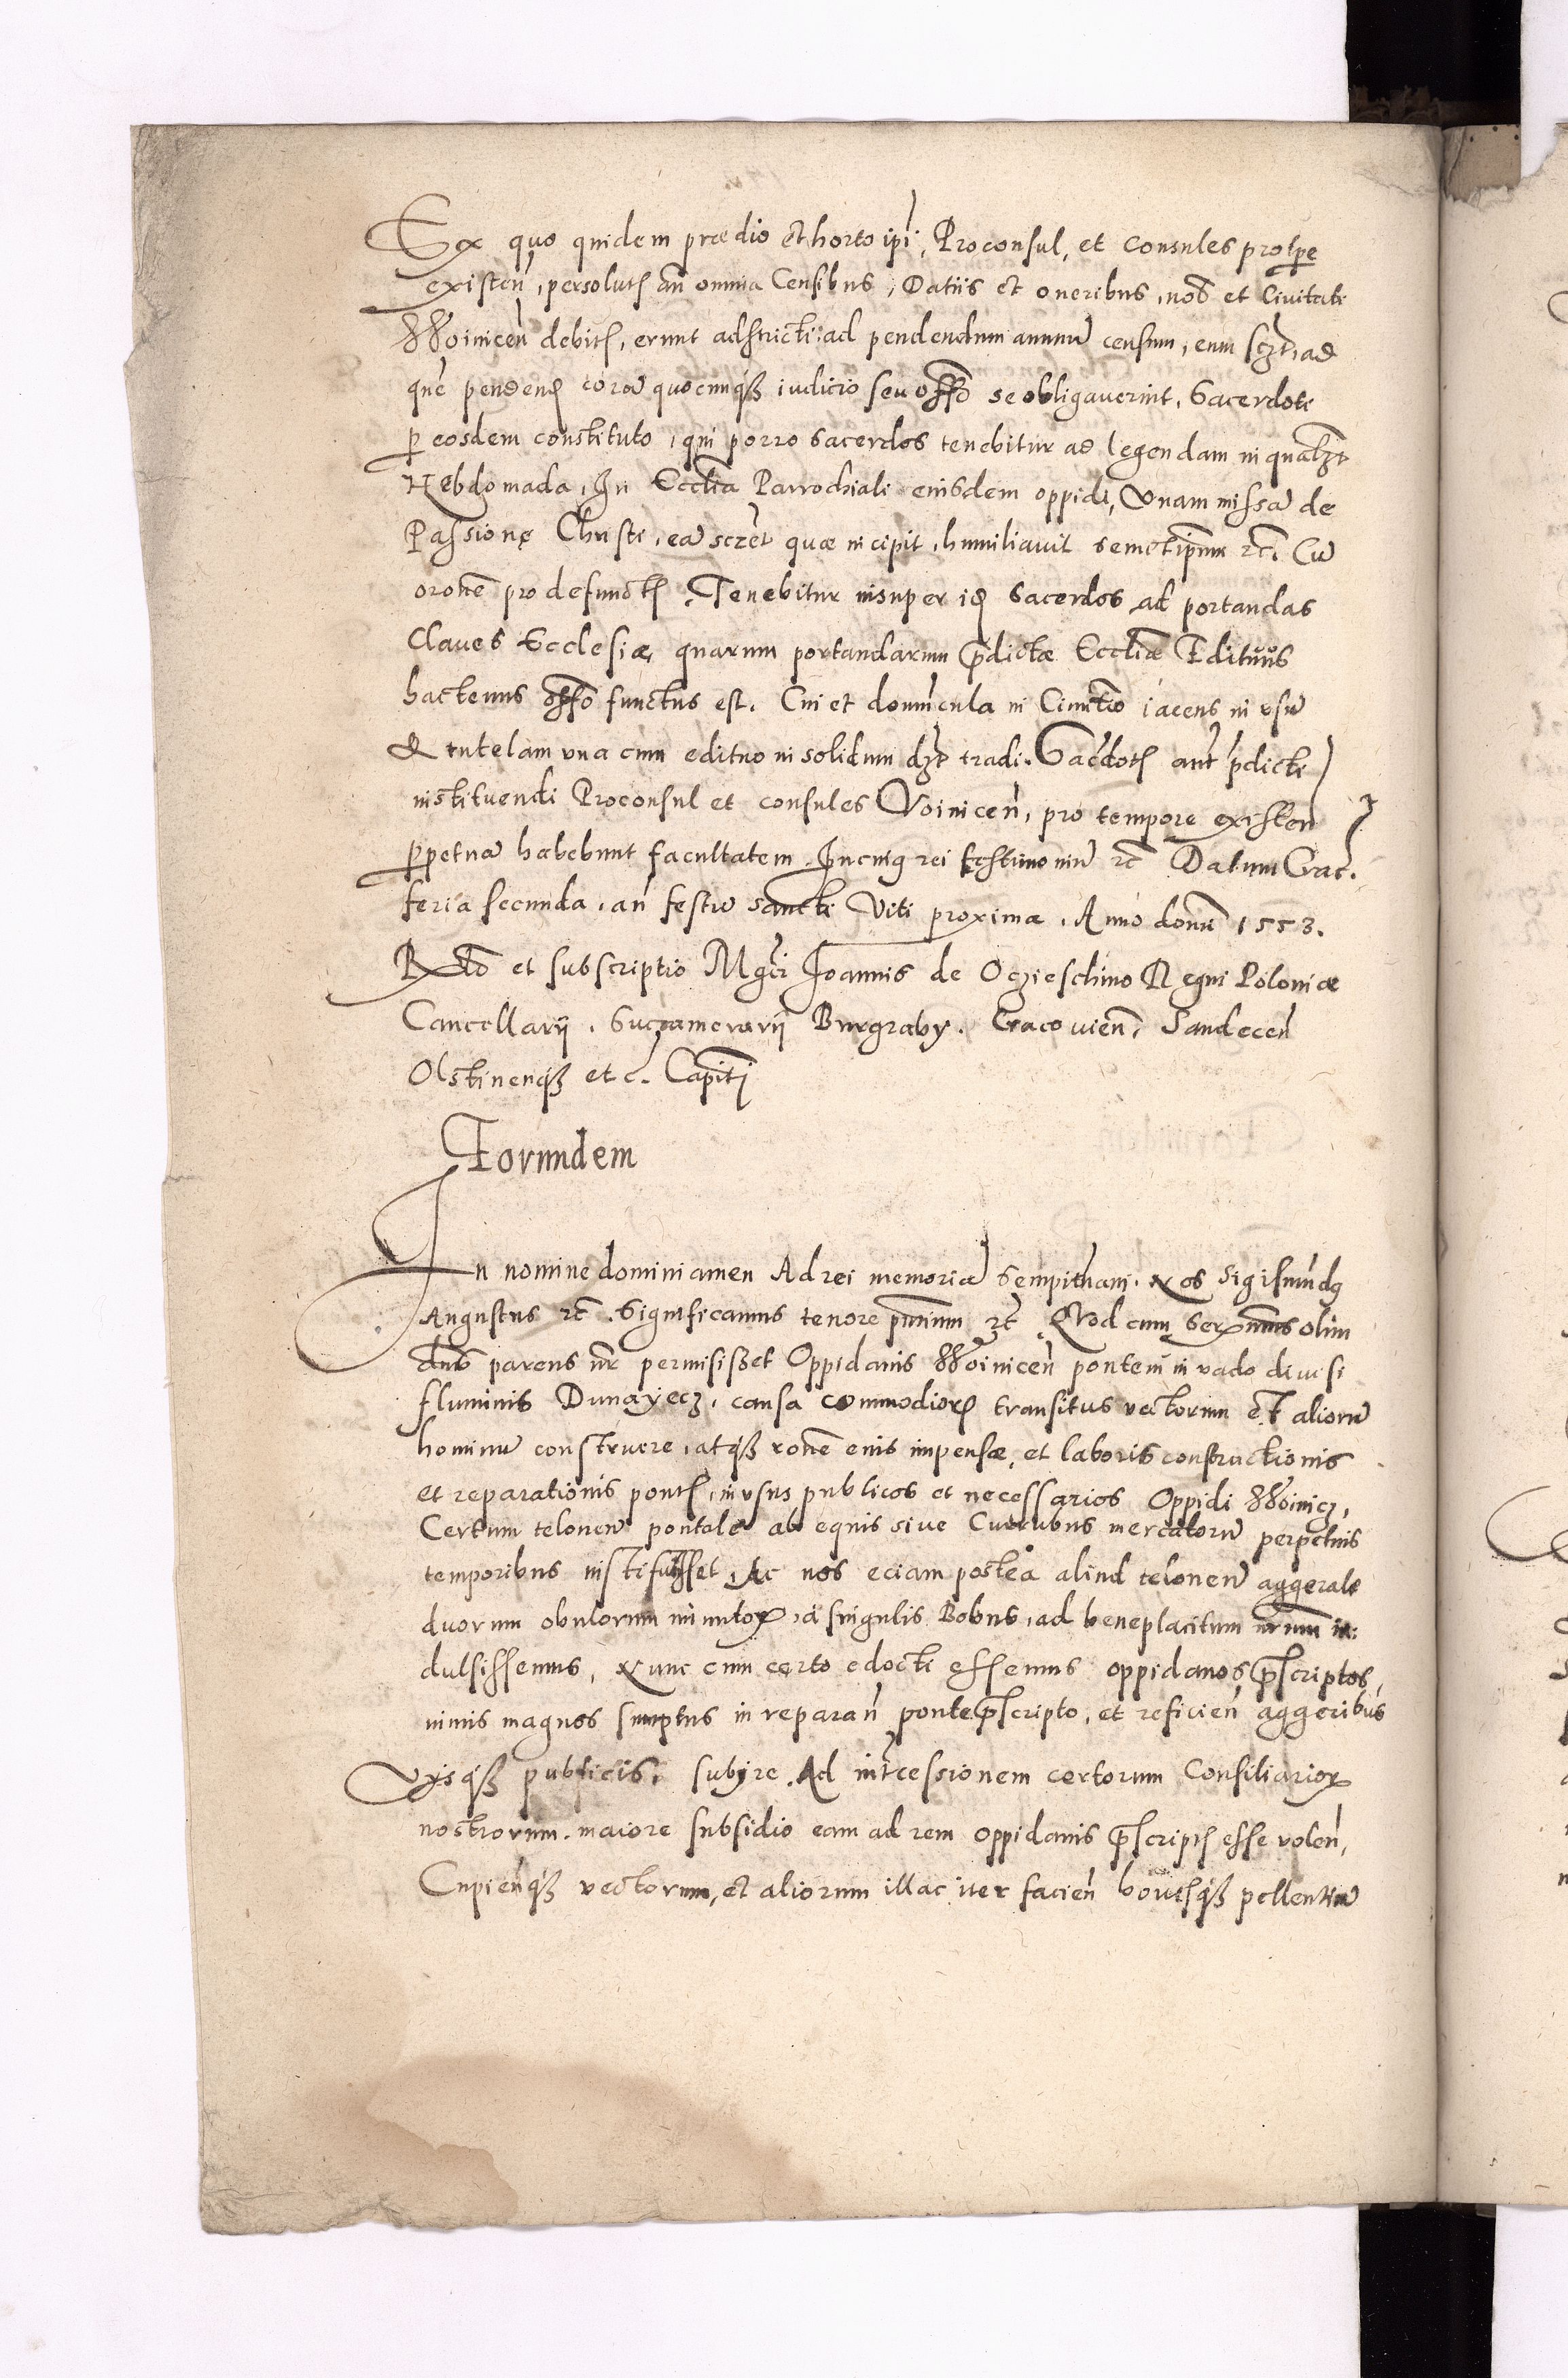 Ex quo quidem prædio et horto ipi, Proconsul, et Consules pro tpe
existen, persolutis an omnia Censibus, Datiis et oneribus, nob et Civitati
Woinicen debitis, erunt adstricti ad pendendum annuũ censum, eum sczt, ad
quẽ pendend corã quocunqz iudicio seu offo se obligaverint, Sacerdoti
p eosdem constituto, qui porro sacerdos tenebitur ad legendam in qualzt
Hebdomada, In Ecclia Parrochiali eiusdem oppidi, Unam missã de
Passione Christi, eã sczet quæ incipit, humiliavit semetipsum etc. Cũ
oronẽ pro defunctis. Tenebitur insuper id sacerdos ad portandas
Claves Ecclesiæ, quarum portandarum prædictæ Eccliæ Edituus
hactenus offo functus est. Cui et domũcula in Cimitio iacens in usũ
& tutelam una cum edituo in solidum dzt tradi. Sacdotis aut pdicti
instituendi Proconsul et consules Voinicen, pro tempore existen
ppetuã habebunt facultatem. In cuiq rei testimoniũ etc Datum Crac.
feria secunda, an festũ sancti Viti proxima, Anno domi 1553.
Relo et subscriptio Mgci Joannis de Oczieschino Regni Poloniæ
Cancellarij. Succamerarij Burgraby. Cracovien, Sandecen
Olstinenqz etc. Capiti
Eorundem
In nomine domini amen Ad rei memoriã sempiternam. Nos Sigismũdq
Augustus etc. Significamus tenore pñtium etc Quod cum Serenmus olim
dnus parens nr permisisset Oppidanis Woinicen pontem in vado divisi
fluminis Dunayecz, causa commodioris transitus vectorum et aliorũ
hominũ construere, atqz ronẽ eius impensæ, et laboris constructionis
et reparationis pontis, in usus publicos et necessarios Oppidi Woinicz,
Certum teloneũ pontale ab equis sive Curribus mercatorũ perpetuis
temporibus instituisset, Ac nos eciam postea aliud teloneũ aggerale
duorum obulorum minutorũ, a singulis Bobus, ad beneplacitum nrum in:
dulsissemus, Nunc cum certo edocti essemus oppidanos pscriptos,
nimis magnos sumptus in reparan ponte pscripto, et reficien aggeribus
Vijsqz publicis, subire. Ad intcessionem certorum Consiliariorũ
nostrorum. maiore subsidio eam ad rem oppidanis pscriptis esse volen,
Cupienqz vectorum, et aliorum illac iter facien bovesqz pellentiũ